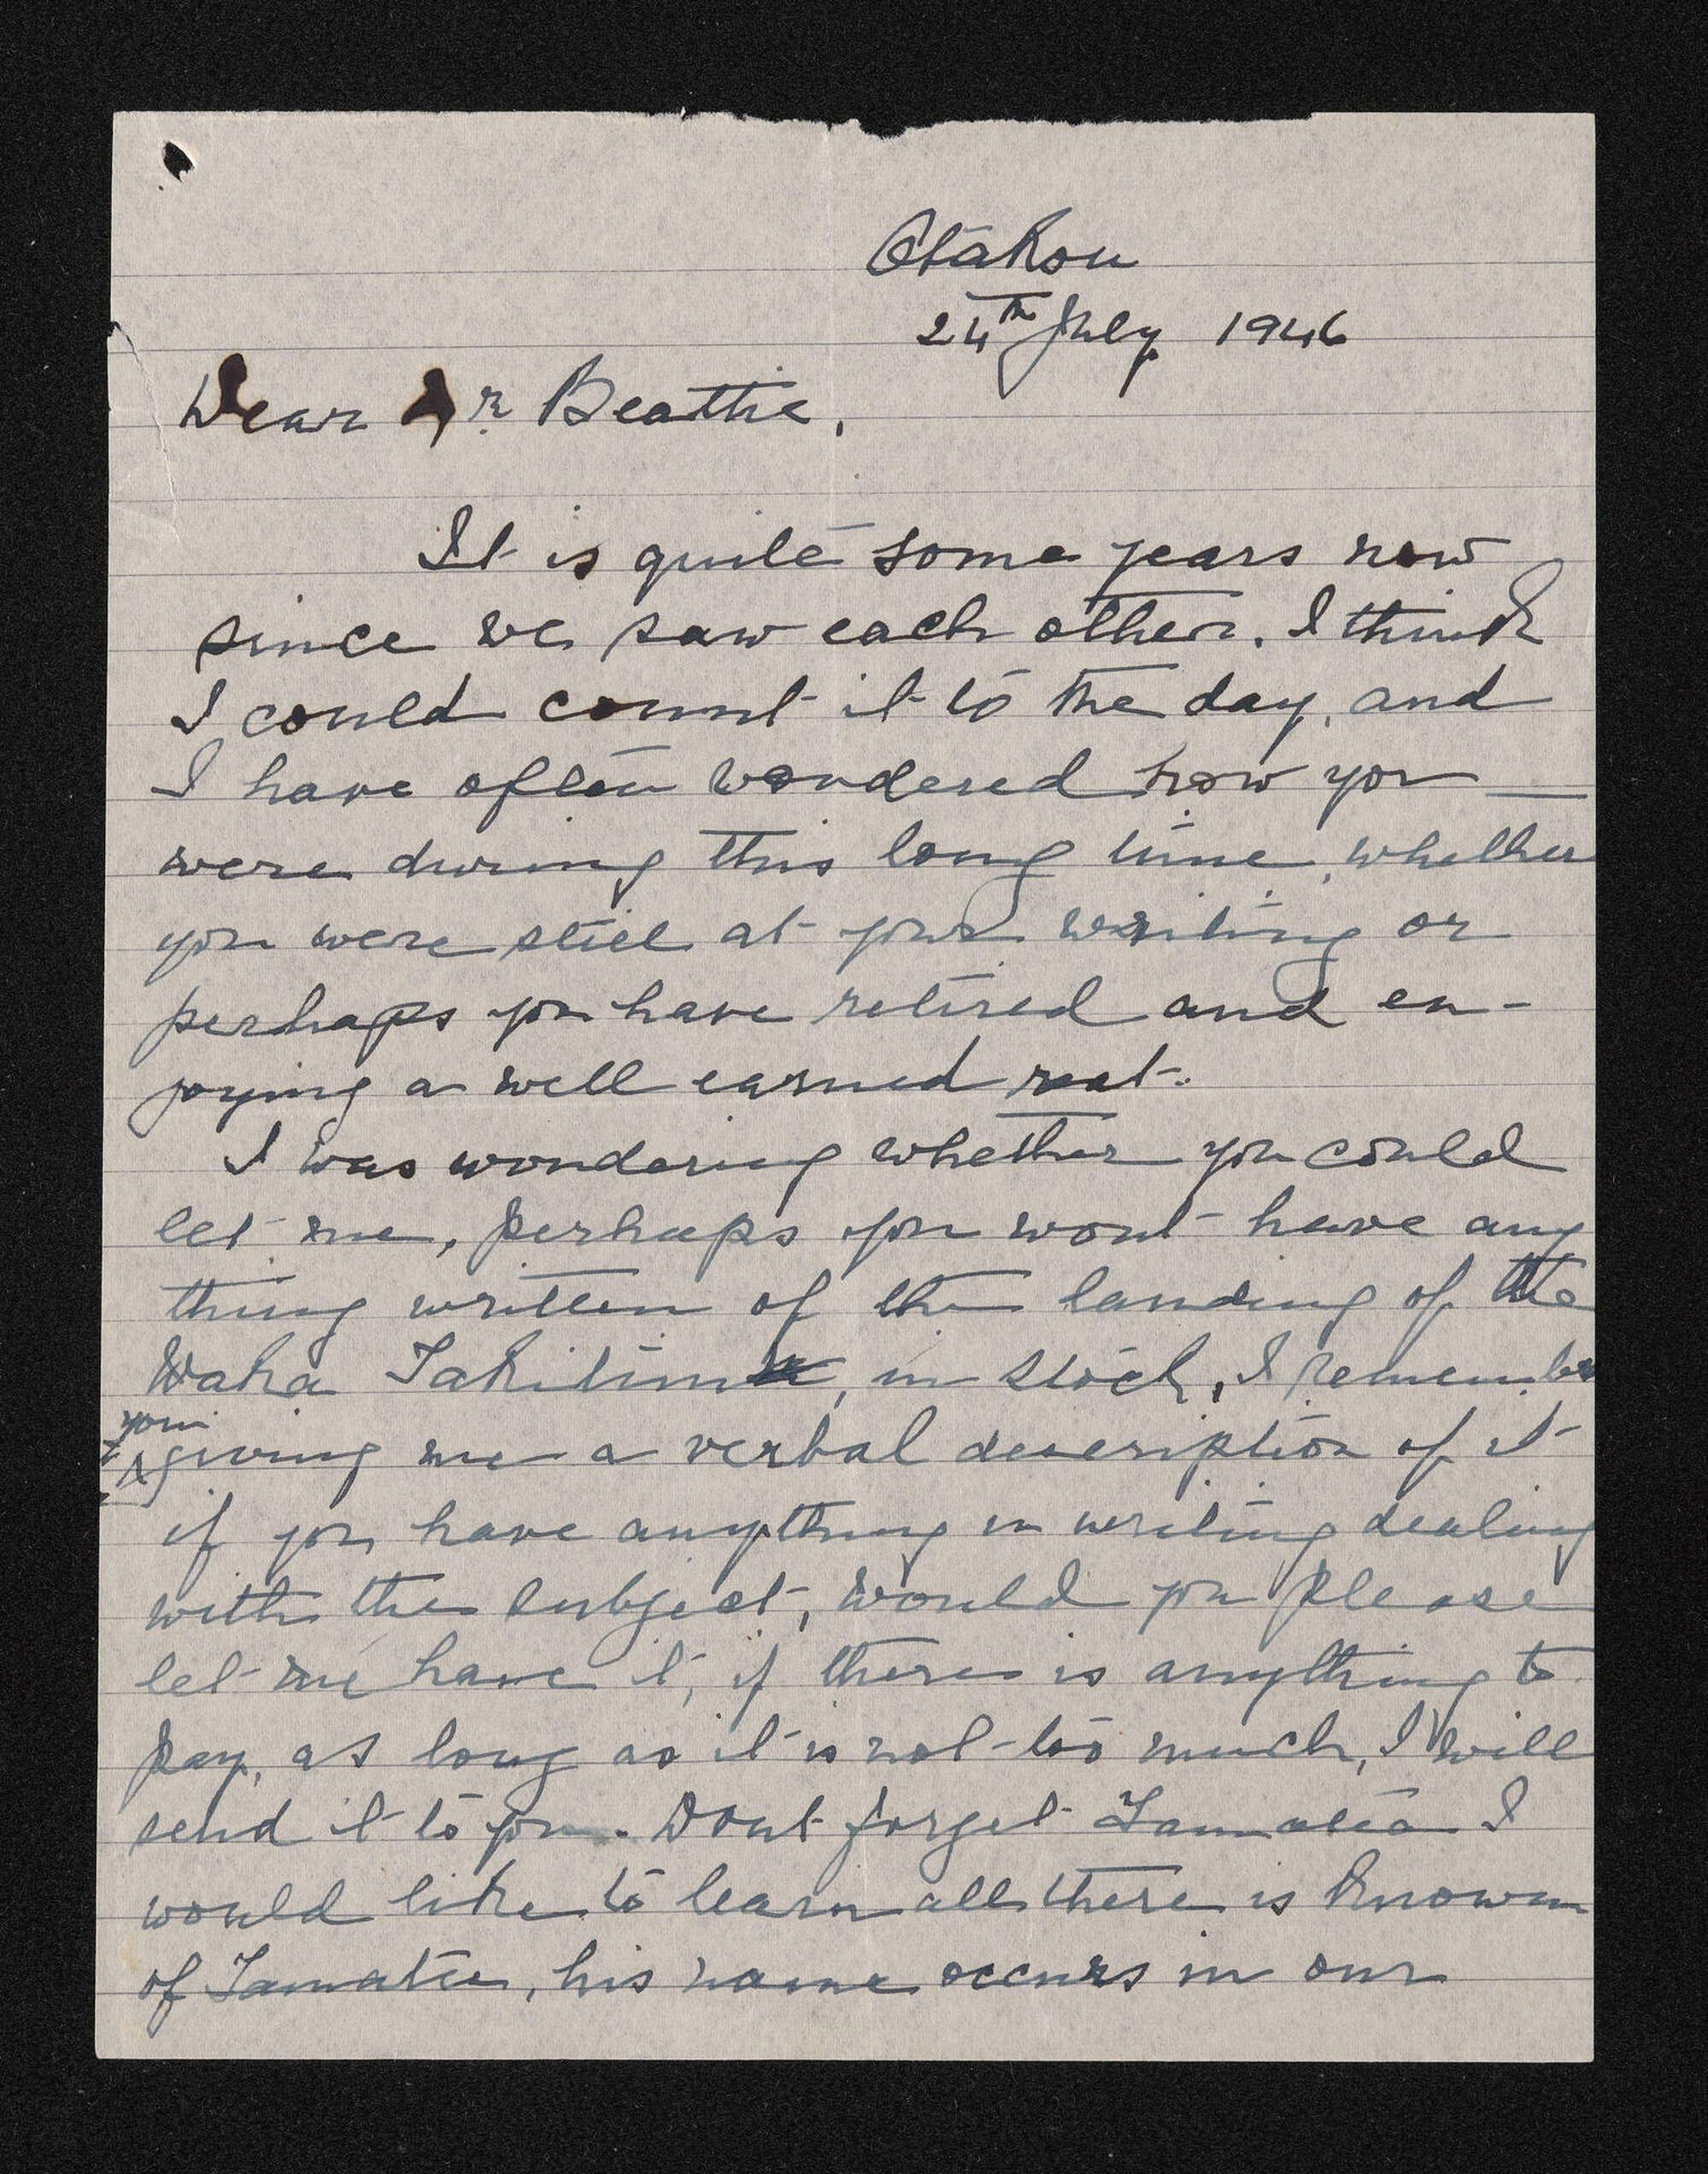 Otakou
24th July 1946
Dear Mr Beattie,
It is quite some years now
since we saw each other. I think
I could count it to the day, and
I have often wondered how you
were during this long time, whether
you were still at your writing or
perhaps you have retired and en-
joying a well earned rest.
I was wondering whether you could
let me, perhaps you wont have any
thing written of the landing of the
Waka Takitimu, in stock, I remember
your
giving me a verbal description of it
if you have anything in writing dealing
with the subject, would you please
let me have it, if there is anything to
pay, as long as it is not too much, I will
send it to you. Dont forget Tamatea I
would like to learn all there is known
of Tamatea, his name occurs in our